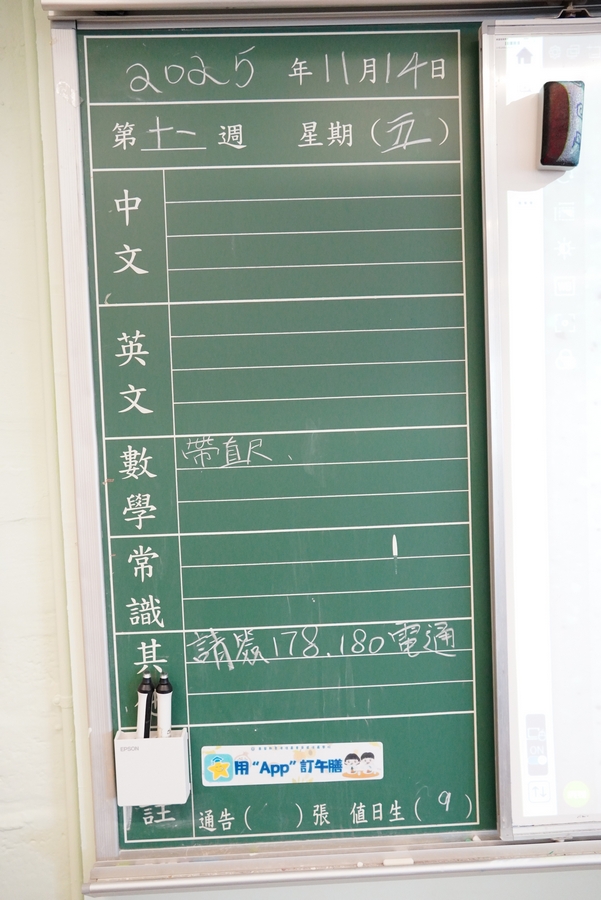 2025 年 11 月 14 日
第 十一 週 星期（五）
中文
英文
數學
帶直尺、
常識
其
請簽178.180電通
EPSON
用“App”訂午膳
註
通告（ ）張 值日生（9）